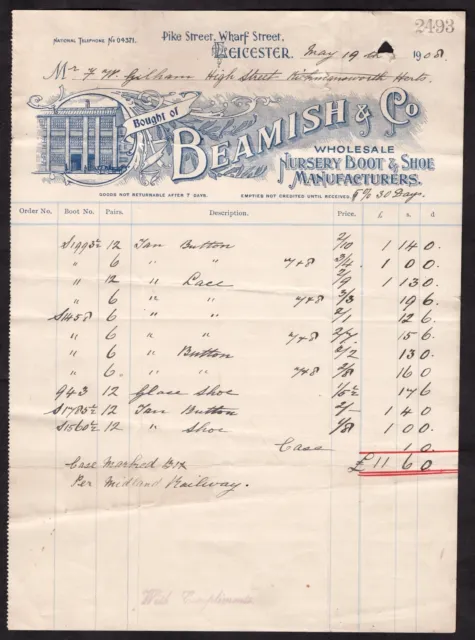 2493
Pike Street, Wharf Street,
NATIONAL TELEPHONE No 04371.
LEICESTER. May 19th 1908
Mr F. W. Gilham High Street Rickmansworth Herts.
Bought of
BEAMISH & Co
WHOLESALE
NURSERY BOOT & SHOE
MANUFACTURERS.
GOODS NOT RETURNABLE AFTER 7 DAYS. EMPTIES NOT CREDITED UNTIL RECEIVED. 5% 30 Days.
Order No. Boot No. Pairs. Description. Price. £ s. d
S1993½ 12 Tan Button 2/10 1 14 0
" 6 " " 7+8 3/4 1 0 0
" 12 " Lace 2/9 1 13 0
" 6 " " 7+8 3/3 19 6
S1458 6 " " 2/1 12 6
" 6 " " 7+8 2/7 15 6
" 6 " Button 2/2 13 0
" 6 " " 7+8 2/8 16 0
943 12 Glace Shoe 1/5½ 17 6
S1785½ 12 Tan Button 2/- 1 4 0
S1560½ 12 " Shoe 1/8 1 0 0
Case 1 0
£11 6 0
Case Marked
Per Midland Railway.
With Compliments